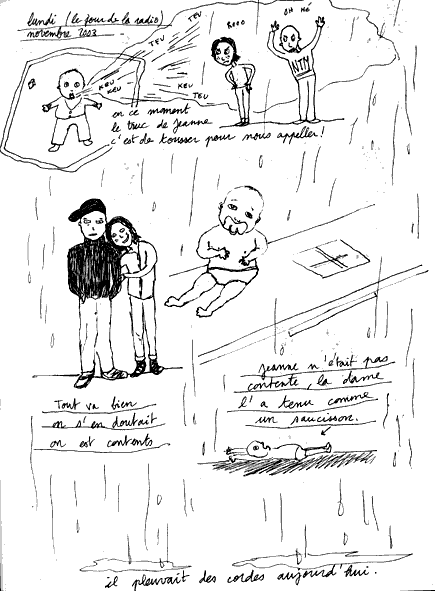 lundi (le jour de la radio)
novembre 2003
TEU
TEU
KEU
KEU
KEU
TEU
BOOO
OH HÉ
NTM
en ce moment
le truc de Jeanne
c'est de tousser pour nous appeller !
Jeanne n'était pas
contente, la dame
l'a tenu comme
un saucisson.
Tout va bien
on s'en doutait
on est contents
il pleuvait des cordes aujourd'hui.